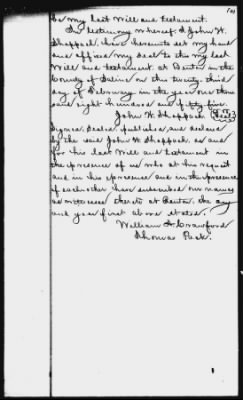 be my last Will and testament.
In testimony whereof I John W.
Shoppach have hereunto set my hand
and affixed my seal to this my last
Will and testament at Benton in the
County of Saline on this twenty-third
day of February in the year one thou
sand eight hundred and fifty five.
John W. Shoppach Seal
Signed, Sealed, published and declared
by the said John W. Shoppach, as and
for his last Will and testament in
the presence of us who at his request
and in his presence and in the presence
of each other have subscribed our names
as witnesses thereto at Benton the day
and year first above stated.
William A. Crawford
Thomas Pack.